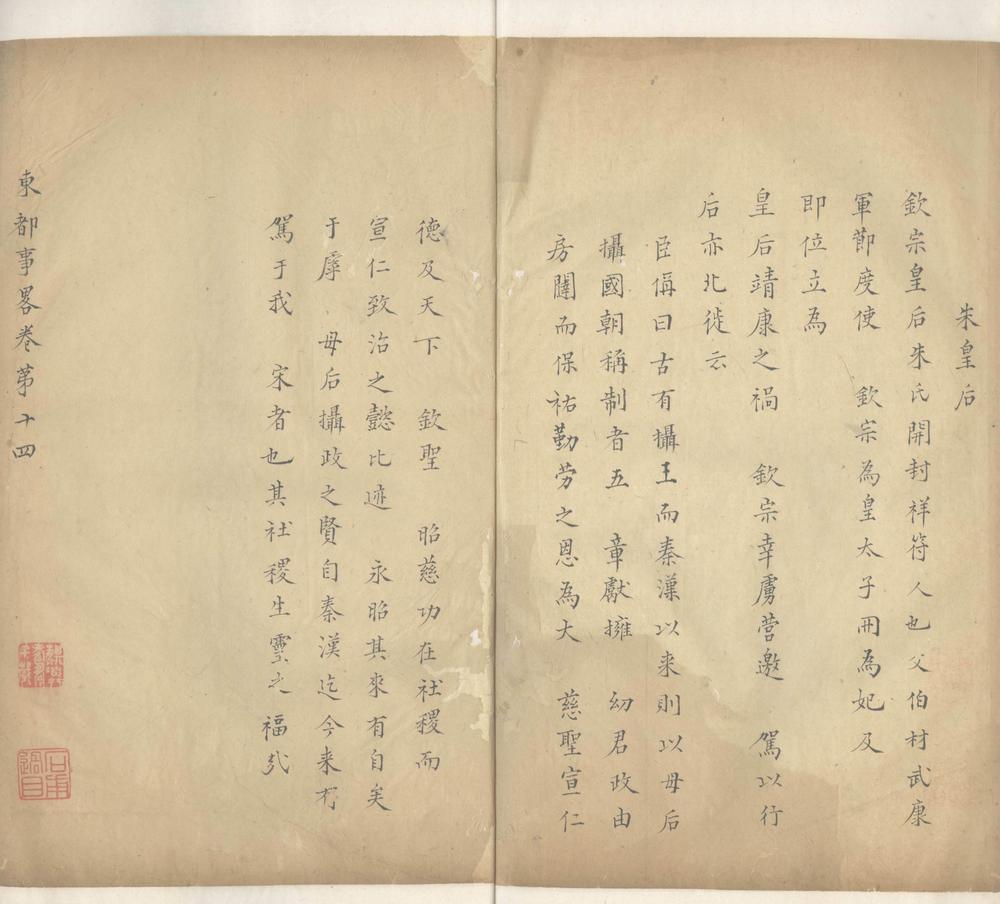 朱皇后
欽宗皇后朱氏開封祥符人也父伯材武康
軍節度使　欽宗為皇太子冊為妃及
即位立為
皇后靖康之禍　欽宗幸虜營邀　駕以行
后亦北徙云
臣偁曰古有攝王而秦漢以來則以母后
攝國朝稱制者五　章獻擁　幼君政由
房闥而保祐勤勞之恩為大　慈聖宣仁
德及天下　欽聖　昭慈功在社稷而
宣仁致治之懿比迹　永昭其來有自矣
于虖　母后攝政之賢自秦漢迄今未有
駕于我　宋者也其社稷生靈之福哉
東都事畧卷第十四
石甫
過目